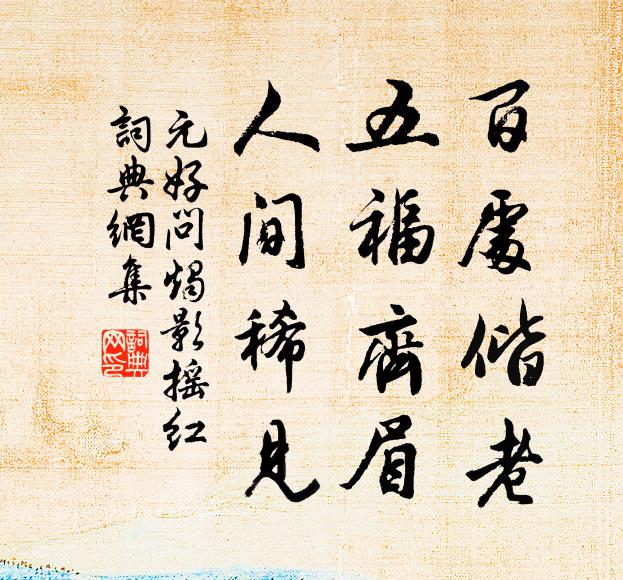 百處偕老
五福齊眉
人间稀見
元好问烛影摇红
詞典網集
詞典網印